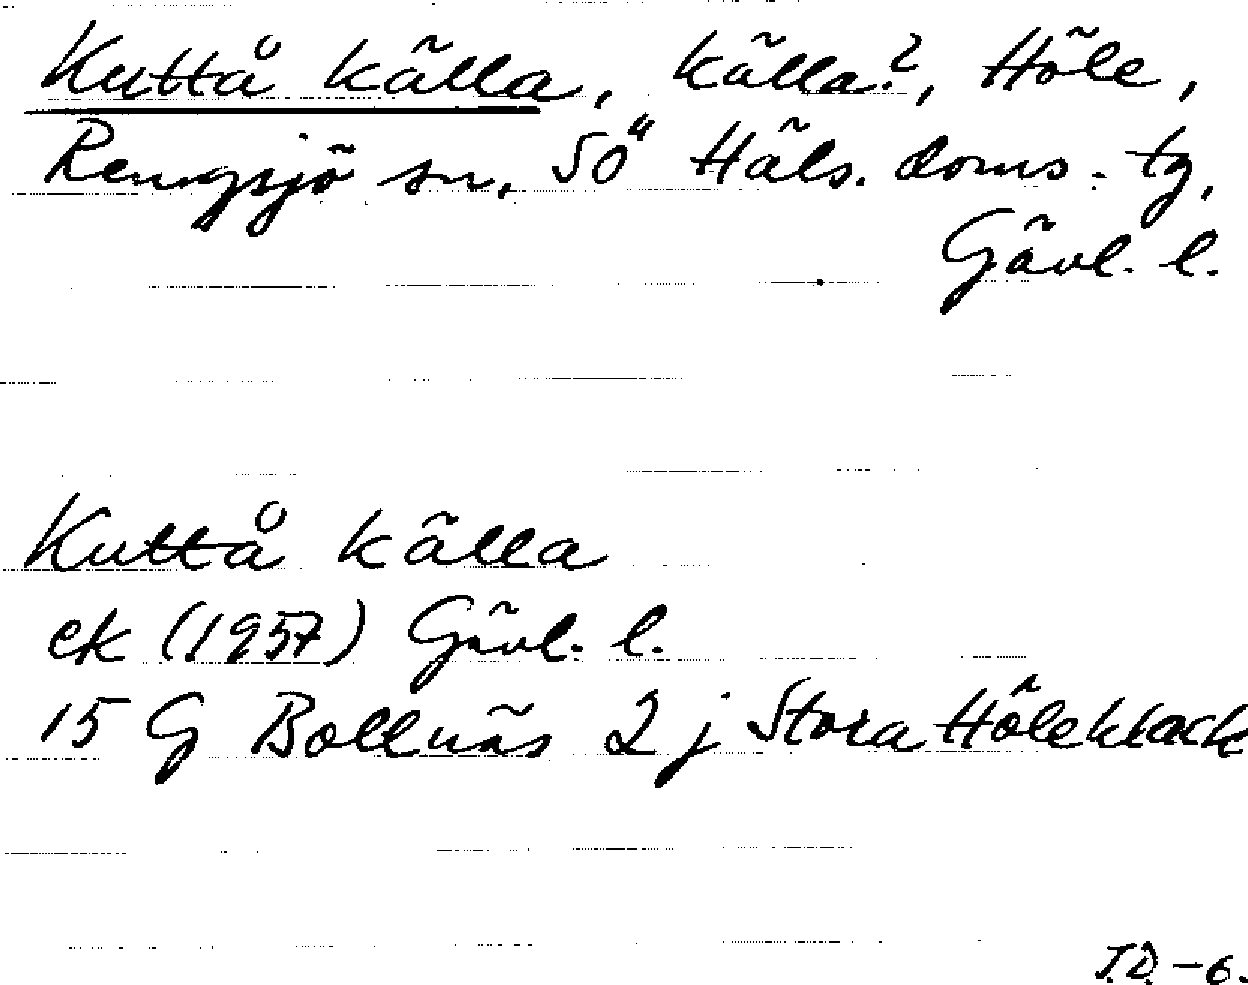 Kuttå källa, källa?, Höle,
Rengsjö sn, SÖ Häls. doms. tg,
Gävl. l.
Kuttå källa
ek (1957) Gävl. l.
15 G Bollnäs 2 j Stora Höleklack